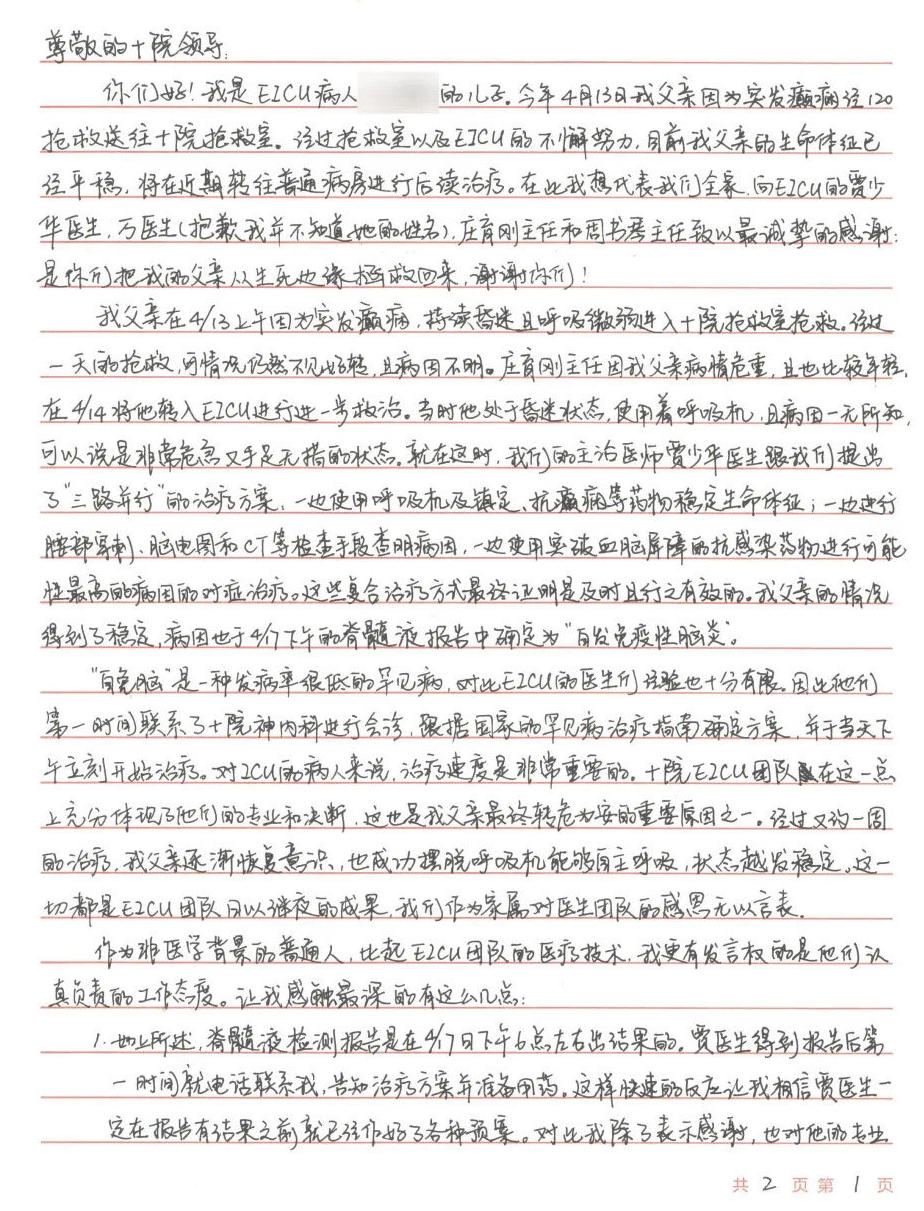 尊敬的十院领导:
你们好!我是EICU病人 的儿子。今年4月13日我父亲因为突发癫痫经120
抢救送往十院抢救室。经过抢救室以及EICU的不懈努力,目前我父亲的生命体征已
经平稳,将在近期转往普通病房进行后续治疗。在此我想代表我们全家,向EICU的贾少
华医生,万医生(抱歉我并不知道她的姓名),庄育刚主任和周书琴主任致以最诚挚的感谢:
是你们把我的父亲从生死边缘拯救回来,谢谢你们!
我父亲在4/13上午因为突发癫痫,持续昏迷且呼吸微弱进入十院抢救室抢救。经过
一天的抢救,可情况仍然不见好转,且病因不明。庄育刚主任因我父亲病情危重,且也比较年轻,
在4/14将他转入EICU进行进一步救治。当时他处于昏迷状态,使用着呼吸机,且病因一无所知,
可以说是非常危急又手足无措的状态。就在这时,我们的主治医师贾少华医生跟我们提出
了“三路并行”的治疗方案,一边使用呼吸机及镇定、抗癫痫等药物稳定生命体征;一边进行
腰部穿刺、脑电图和CT等检查手段查明病因,一边使用突破血脑屏障的抗感染药物进行可能
性最高的病因的对症治疗。这些复合治疗方式最终证明是及时且行之有效的。我父亲的情况
得到了稳定,病因也于4/17下午的脊髓液报告中确定为“自发免疫性脑炎”。
“自免脑”是一种发病率很低的罕见病,对此EICU的医生们经验也十分有限。因此他们
第一时间联系了十院神内科进行会诊,跟据国家的罕见病治疗指南确定方案,并于当天下
午立刻开始治疗。对ICU的病人来说,治疗速度是非常重要的。十院EICU团队在这一点
上充分体现了他们的专业和决断,这也是我父亲最终转危为安的重要原因之一。经过又约一周
的治疗,我父亲逐渐恢复意识,也成功摆脱呼吸机能够自主呼吸,状态越发稳定。这一
切都是EICU团队日以继夜的成果,我们作为家属对医生团队的感恩无以言表。
作为非医学背景的普通人,比起EICU团队的医疗技术,我更有发言权的是他们认
真负责的工作态度。让我感触最深的有这么几点:
1. 如上所述,脊髓液检测报告是在4/17日下午6点左右出结果的。贾医生得到报告后第
一时间就电话联系我,告知治疗方案并准备用药。这样快速的反应让我相信贾医生一
定在报告有结果之前就已经作好了各种预案。对此我除了表示感谢,也对他的专业
共 2 页 第 1 页